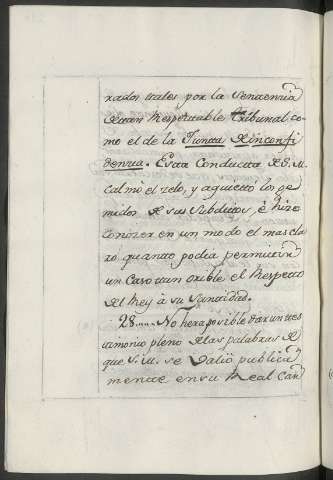 rados tales por la Sentencia
de tan Respectable Tribunal co-
mo el de la Junta de inconfi
dencia. Esta Conducta de S. M.
calmò el zelo, y aguietto los ge-
midos de sus Subditos, è hizo
Conozer en un modo el mas cla
ro quanto podia permitir
un Caso tan orible el Respecto
del Rey à su Santidad.
28.... No hera posible dar un tes
timonio pleno de las palabras de
que S. M. se valiò publica
mente en su Real Car